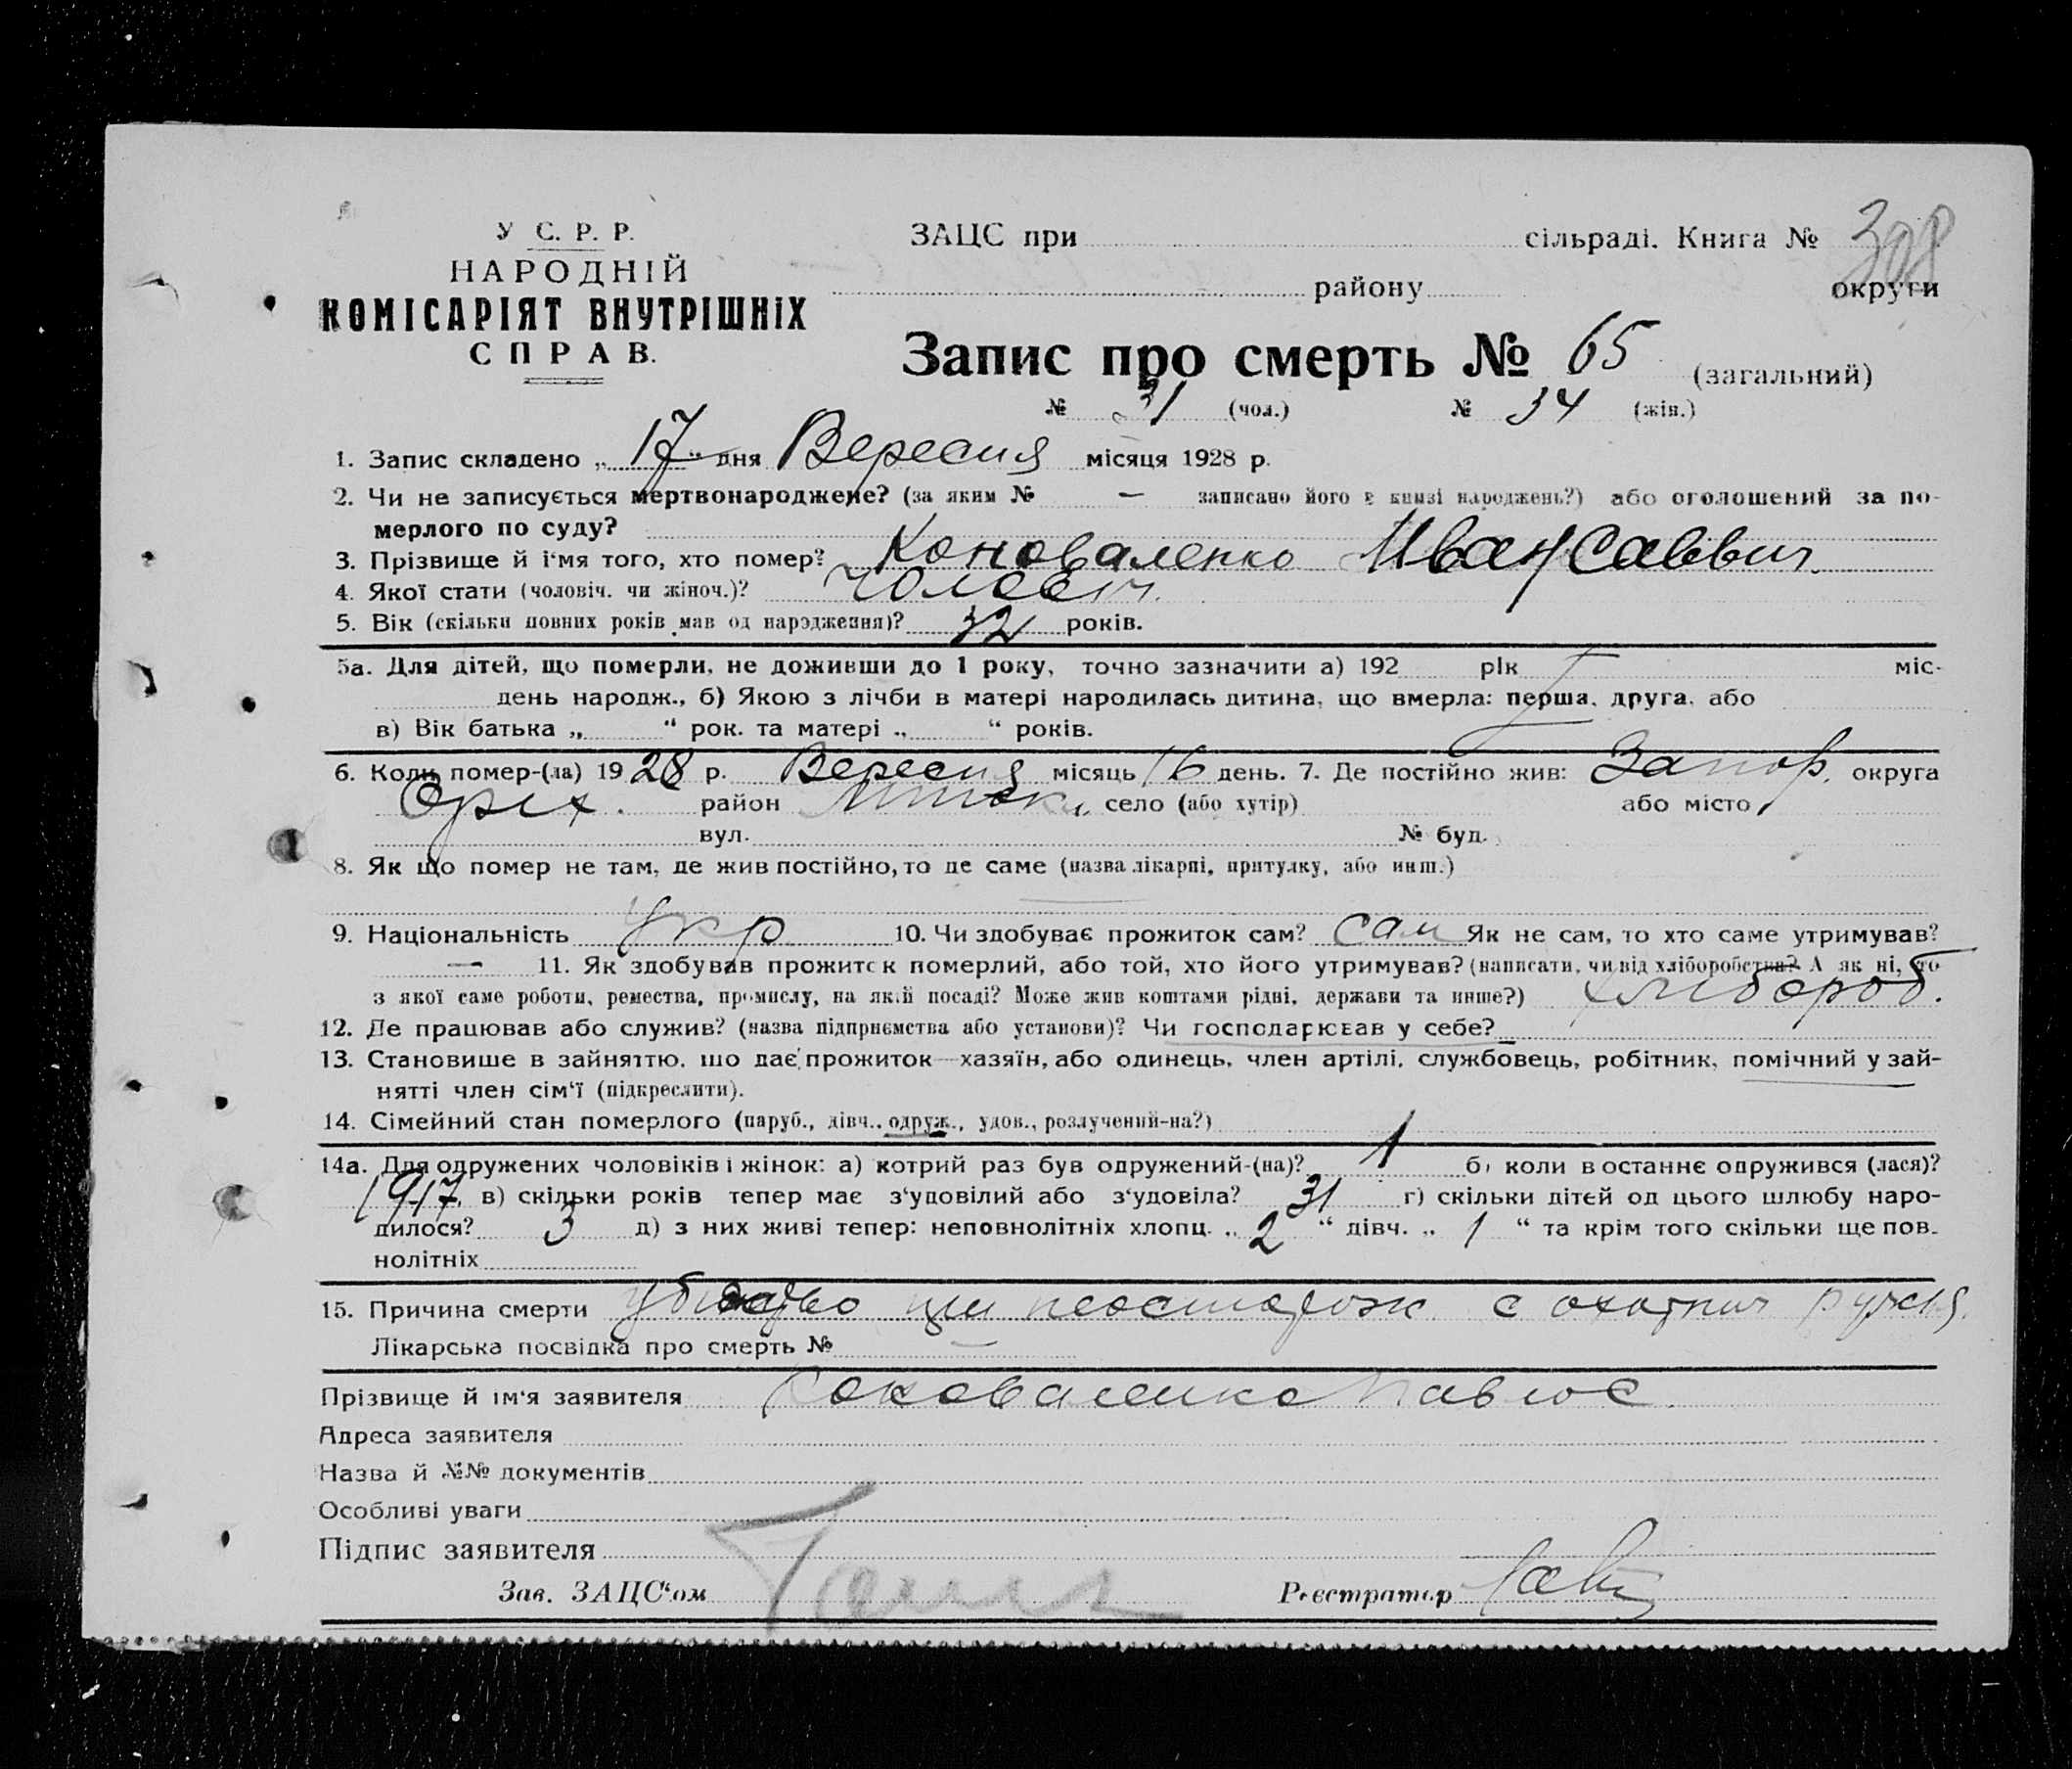 У С. Р. Р.
НАРОДНІЙ
КОМІСАРІЯТ ВНУТРІШНІХ
СПРАВ.
ЗАЦС при сільраді. Книга № 308
району округи
Запис про смерть № 65 (загальний)
№ 31 (чол.) № 34 (жін.)
1. Запис складено „ 17 “ дня Вересня місяця 1928 р.
2. Чи не записується мертвонароджене? (за яким № — записано його в книзі народжень?) або оголошений за по-
мерлого по суду?
3. Прізвище й і‘мя того, хто помер? Коноваленко Иван Саввич.
4. Якої стати (чоловіч. чи жіноч.)? чоловіч.
5. Вік (скільки повних років мав од народження)? 32 років.
5а. Для дітей, що померли, не доживши до 1 року, точно зазначити а) 192 рік міс-
день народж., б) Якою з лічби в матері народилась дитина, що вмерла: перша, друга, або
в) Вік батька „ “ рок. та матері „ “ років.
6. Коли помер-(ла) 1928 р. Вересня місяць 16 день. 7. Де постійно жив: Запор. округа
Оріх. район село (або хутір) або місто
вул. № буд.
8. Як що помер не там, де жив постійно, то де саме (назва лікарні, притулку, або инш.)
9. Національність Укр 10. Чи здобуває прожиток сам? сам Як не сам, то хто саме утримував?
— 11. Як здобував прожиток померлий, або той, хто його утримував? (написати, чи від хліборобства? А як ні, то
з якої саме роботи, ремества, промислу, на якій посаді? Може жив коштами рідні, держави та инше?) хлібороб.
12. Де працював або служив? (назва підприємства або установи)? Чи господарював у себе?
13. Становище в зайняттю, що дає прожиток—хазяїн, або одинець, член артілі, службовець, робітник, помічний у зай-
нятті член сім‘ї (підкреслити).
14. Сімейний стан померлого (паруб., дівч., одруж., удов., розлучений-на?)
14а. Для одружених чоловіків і жінок: а) котрий раз був одружений-(на)? 1 б) коли востаннє одружився (лася)?
1917. в) скільки років тепер має з‘удовілий або з‘удовіла? 31 г) скільки дітей од цього шлюбу наро-
дилося? 3 д) з них живі тепер: неповнолітніх хлопц. „ 2 “ дівч. „ 1 “ та крім того скільки ще пов-
нолітніх
15. Причина смерти убийство при неосторож с охотнич ружня.
Лікарська посвідка про смерть № —
Прізвище й ім‘я заявителя Коноваленко Павлос
Адреса заявителя
Назва й №№ документів
Особливі уваги
Підпис заявителя
Зав. ЗАЦС‘ом
Реєстратор